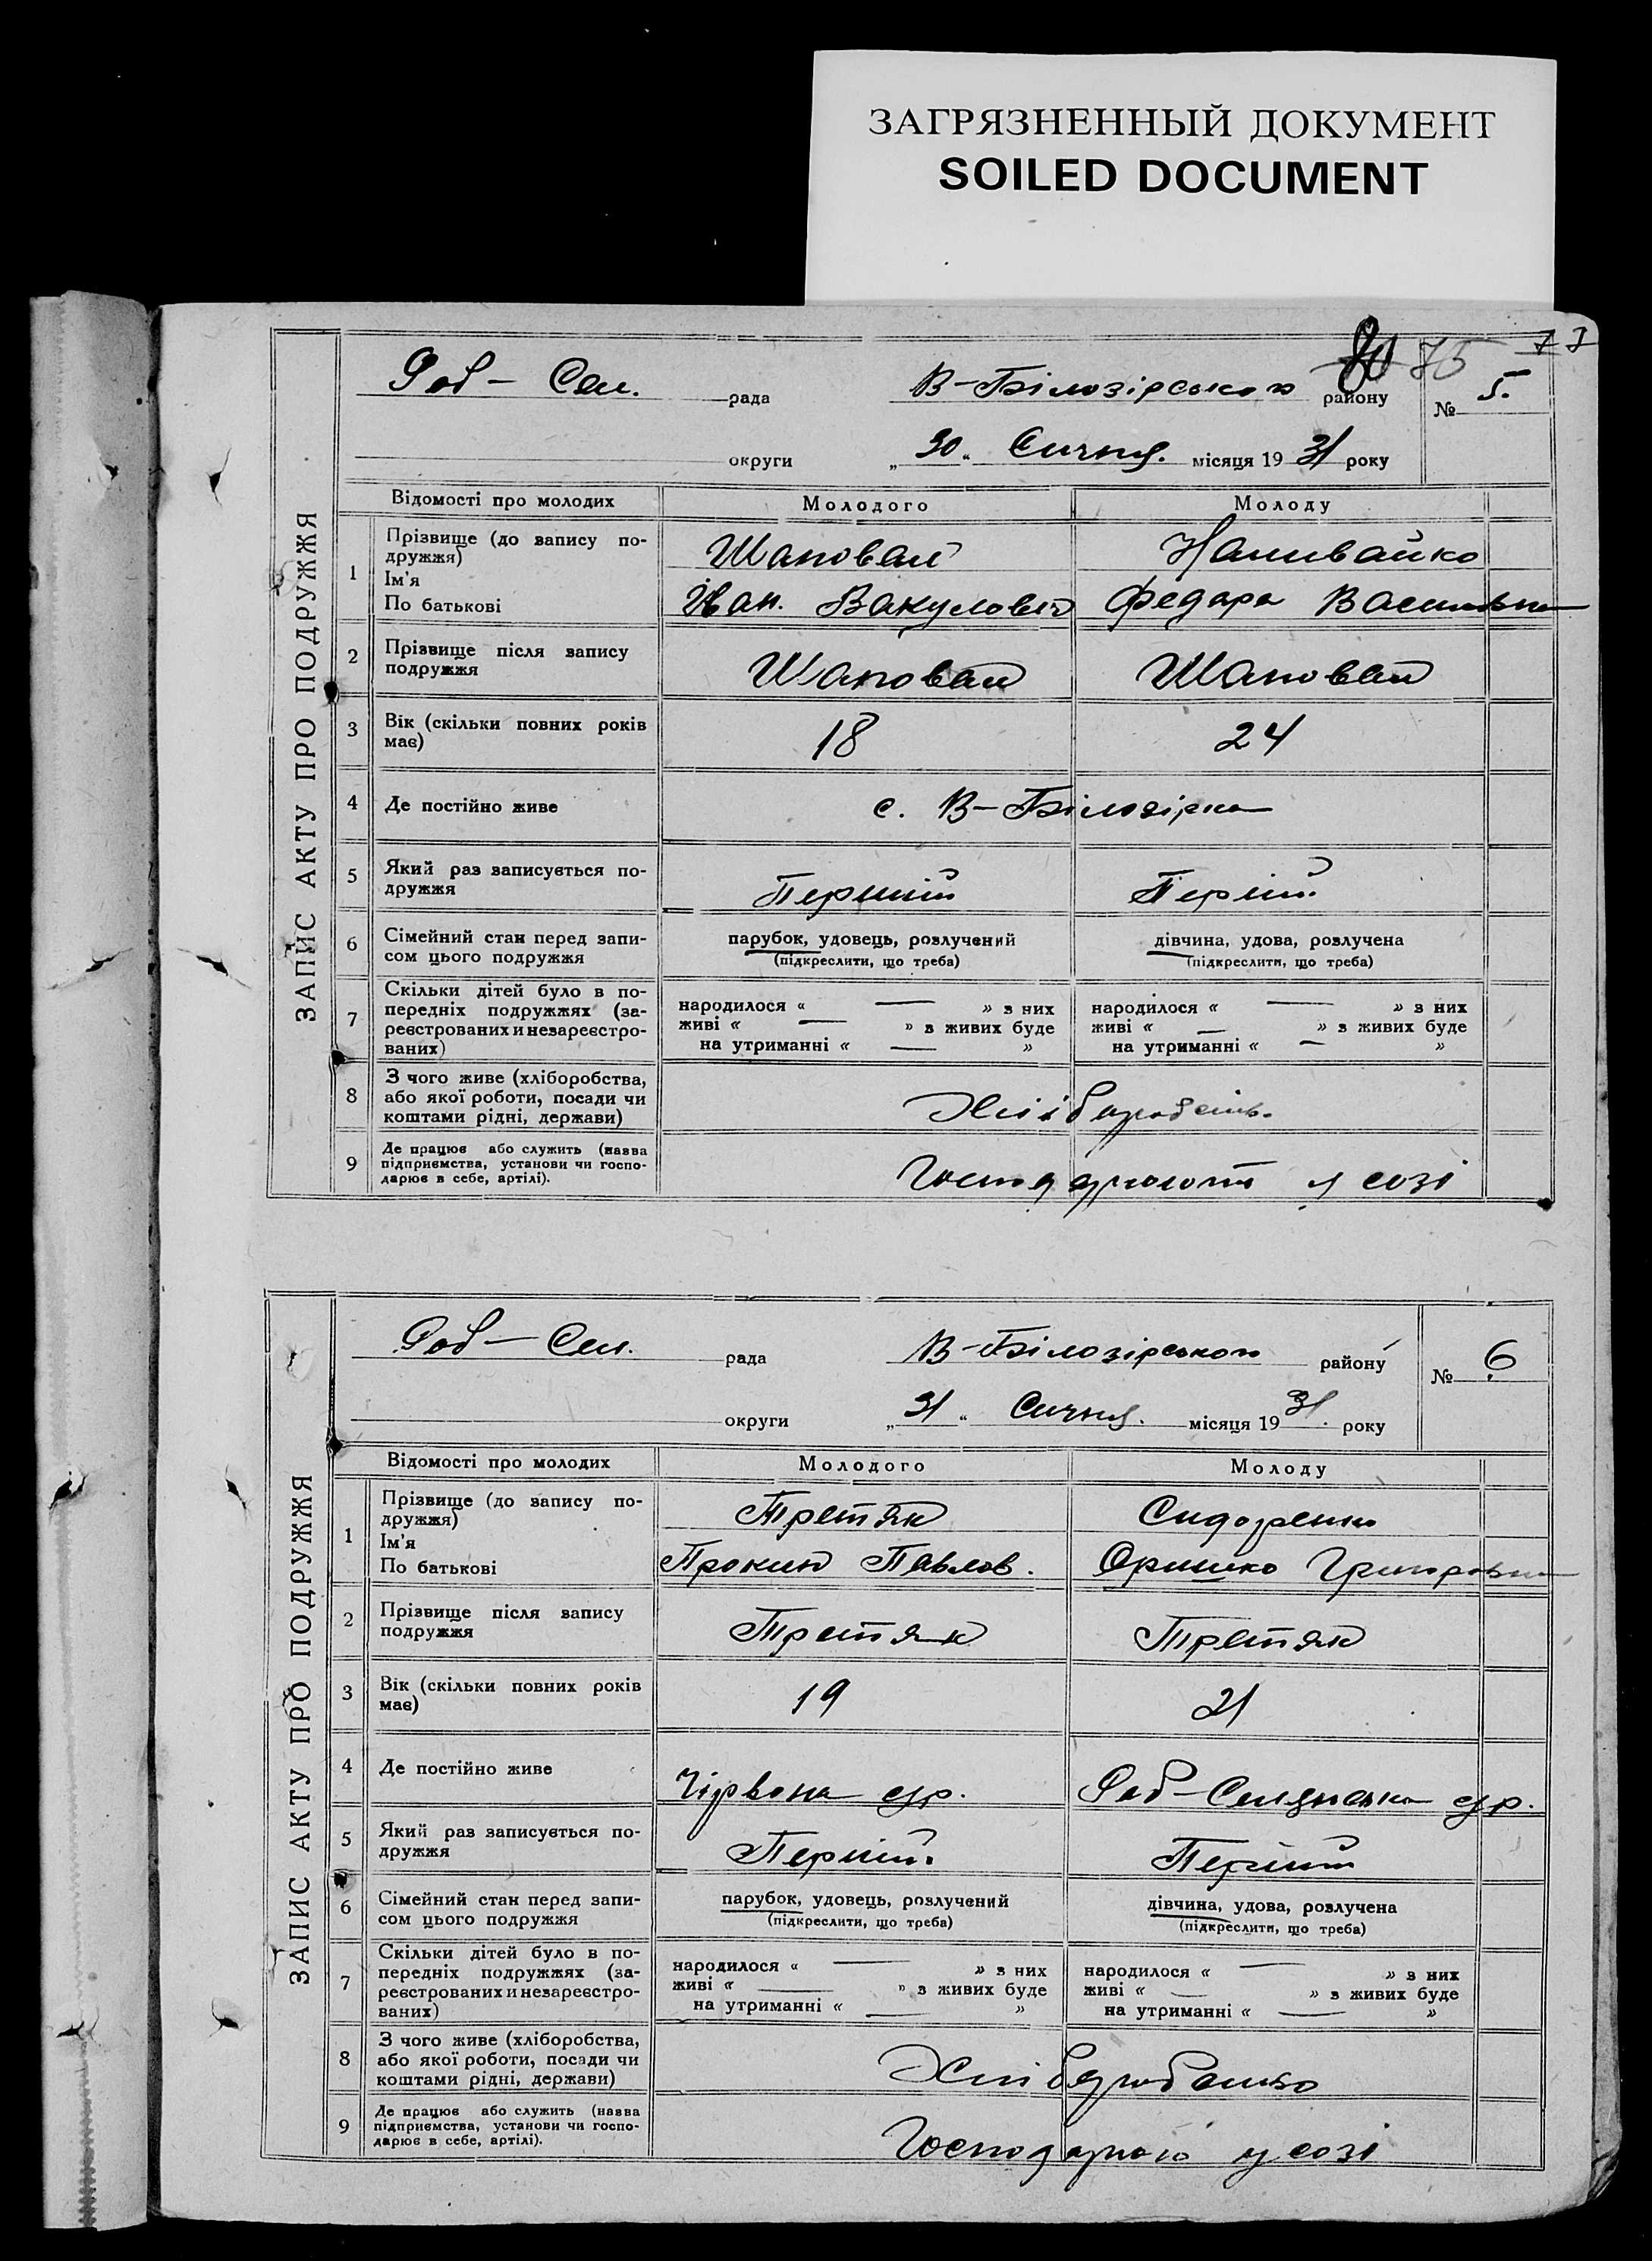 ЗАГРЯЗНЕННЫЙ ДОКУМЕНТ
SOILED DOCUMENT
80 75 77
ЗАПИС АКТУ ПРО ПОДРУЖЖЯ
Роб- Сел. рада В-Білозірського району № 5.
округи „30“ Січня. місяця 1931 року
Відомості про молодих Молодого Молоду
1 Прізвище (до запису подружжя) Шаповал Наливайко
Ім'я
По батькові Іван. Вакулович Федора Васильвна
2 Прізвище після запису подружжя Шаповал Шаповал
3 Вік (скільки повних років має) 18 24
4 Де постійно живе с. В-Білозірка
5 Який раз записується подружжя Перший Перший
6 Сімейний стан перед записом цього подружжя парубок, удовець, розлучений дівчина, удова, розлучена
(підкреслити, що треба) (підкреслити, що треба)
7 Скільки дітей було в попередніх подружжях (зареєстрованих и незареєстрованих) народилося « — » з них народилося « — » з них
живі « — » з живих буде живі « — » з живих буде
на утриманні « — » на утриманні « — »
8 З чого живе (хліборобства, або якої роботи, посади чи коштами рідні, держави)
9 Де працює або служить (назва підприємства, установи чи господарює в себе, артілі). у созі
ЗАПИС АКТУ ПРО ПОДРУЖЖЯ
Роб- Сел. рада В-Білозірського району № 6
округи „31“ Січня. місяця 1931. року
Відомості про молодих Молодого Молоду
1 Прізвище (до запису подружжя) Третяк Сидоренко
Ім'я
По батькові Прокип Павлов. Оришко Григоровна
2 Прізвище після запису подружжя Третяк Третяк
3 Вік (скільки повних років має) 19 21
4 Де постійно живе Чірвона с/р. Роб-Селянська с/р.
5 Який раз записується подружжя Перший. Перший
6 Сімейний стан перед записом цього подружжя парубок, удовець, розлучений дівчина, удова, розлучена
(підкреслити, що треба) (підкреслити, що треба)
7 Скільки дітей було в попередніх подружжях (зареєстрованих и незареєстрованих) народилося « — » з них народилося « — » з них
живі « — » з живих буде живі « — » з живих буде
на утриманні « — » на утриманні « — »
8 З чого живе (хліборобства, або якої роботи, посади чи коштами рідні, держави)
9 Де працює або служить (назва підприємства, установи чи господарює в себе, артілі). у созі